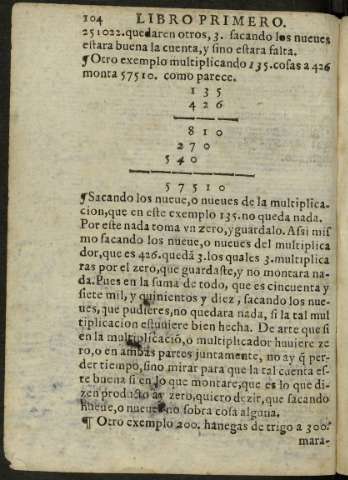 104 LIBRO PRIMERO.
251022. quedaren otros, 3. sacando los nueues
estara buena la cuenta, y sino estara falta.
¶ Otro exemplo multiplicando 135. cosas a 426
monta 57510. como parece.
1 3 5
4 2 6
8 1 0
2 7 0
5 4 0
5 7 5 1 0
¶ Sacando los nueue, o nueues de la multiplica
cion, que en este exemplo 135. no queda nada.
Por este nada toma vn zero, y guardalo. Assi mis
mo sacando los nueue, o nueues del multiplica
dor, que es 426. quedã 3. los quales 3. multiplica
ras por el zero, que guardaste, y no montara na-
da. Pues en la suma de todo, que es cincuenta y
siete mil, y quinientos y diez, sacando los nue-
ues, que pudieres, no quedara nada, si la tal mul
tiplicacion estuuiere bien hecha. De arte que si
en la multiplicació, o multiplicador huuiere ze
ro, o en ambas partes juntamente, no ay q̃ per-
der tiempo, sino mirar para que la tal cuenta es-
te buena si en lo que montare, que es lo que di-
zen producto ay zero, quiero dezir, que sacando
nueue, o nueues no sobra cosa alguna.
¶ Otro exemplo 200. hanegas de trigo a 300.
mara-